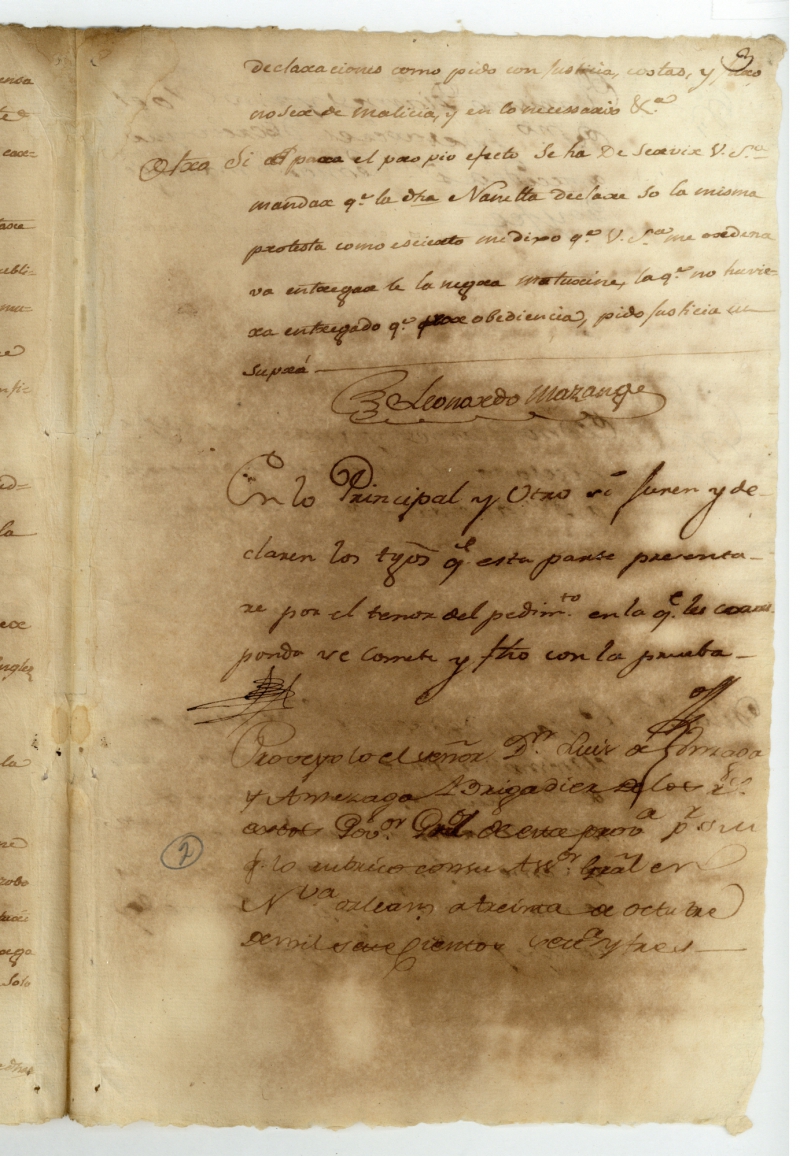 declaraciones como pido con Justicia, costas, y Juro
no ser de malicia, y en lo necessario &.ª
Otro Si para el propio efecto se ha De Servir V. S.ria
mandar q.e la dha Nanetta declare so la misma
protesta como es cierto me dixo q.e V. S.ria me ordena
va entregar le la negra maturine, la q.e no huvie=
ra entregado q.e por obediencia, pido Justicia ut
supra
Leonardo Mazange
En lo Principal y Otro si Juren y de-
claren los tgos q.e esta parte presenta-
re por el tenor del pedim.to en la q.e les corres
ponda se comete y fho con la prueba
Proveyolo el señor D.n Luis de Unzaga
y Amezaga Brigadier de los r.s
extos Gov.or Gral de esta prov.a p.r su
lo rubrico con su Ass.or Gral en
N.va orleans a treinta de octubre
de mil sete Cientos sete.ta y tres
2
ensa
la
Ingles
la
robo
solo